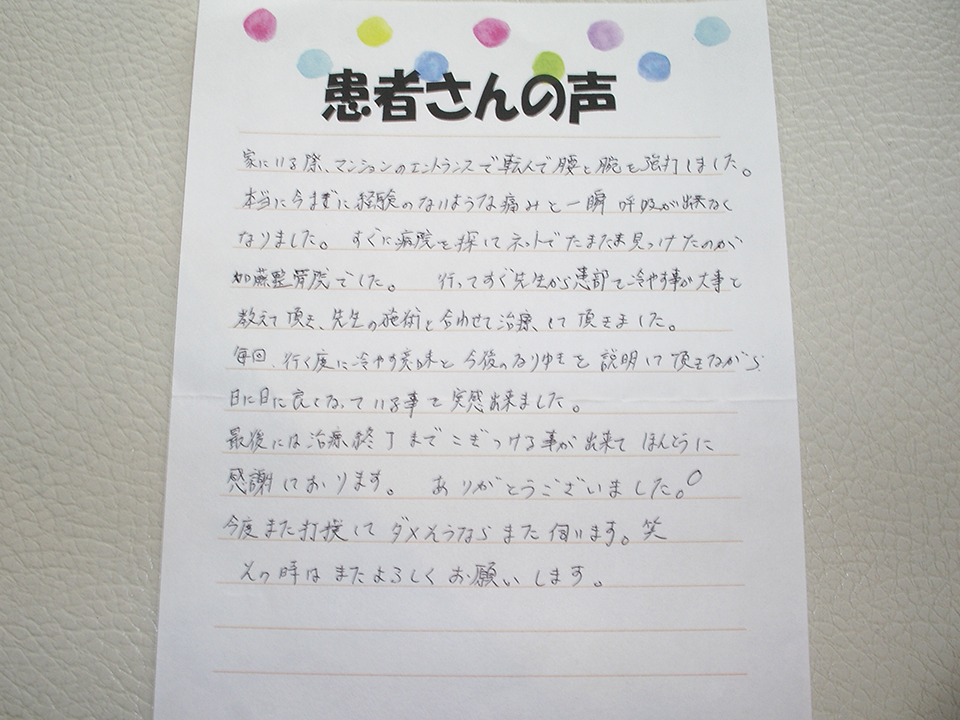 患者さんの声
家にいる際、マンションのエントランスで転んで腰と腕を強打しました。
本当に今までに経験のないような痛みと一瞬呼吸が出来なく
なりました。すぐに病院を探してネットでたまたま見つけたのが
加藤整骨院でした。 行ってすぐ先生から患部を冷やす事が大事と
教えて頂き、先生の施術と合わせて治療して頂きました。
毎回、行く度に冷やす意味と今後のなりゆきを説明して頂きながら
日に日に良くなっている事を実感出来ました。
最後には治療終了までこぎつける事が出来てほんとうに
感謝しております。 ありがとうございました。
今度また打撲してダメそうならまた伺います。笑
その時はまたよろしくお願いします。